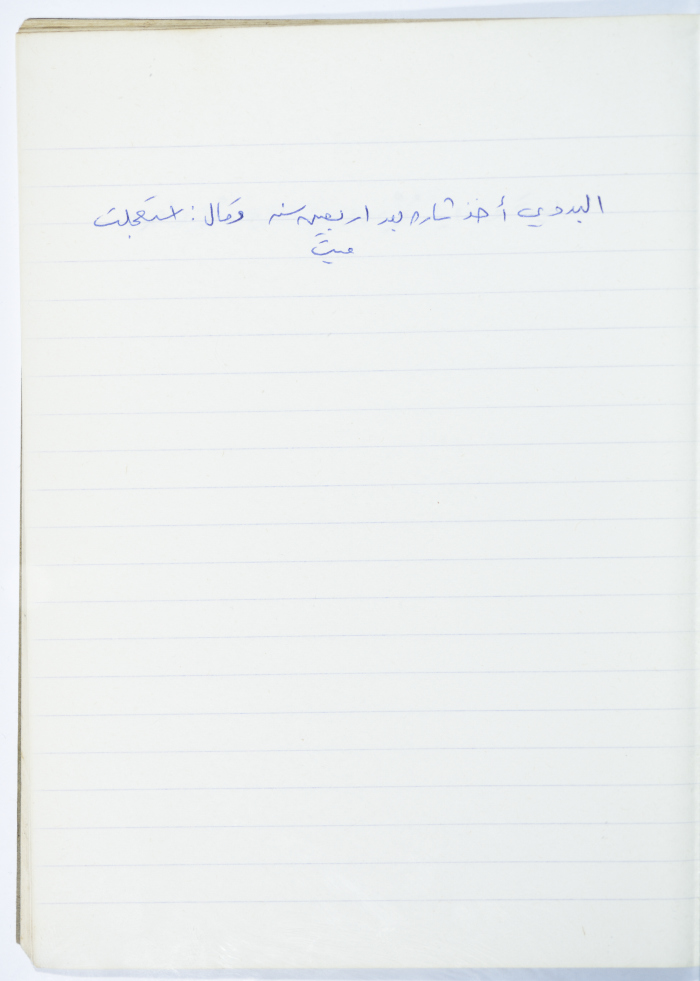 البدوي أخذ ثاره بعد اربعين سنه وقال : استعجلت
ميت